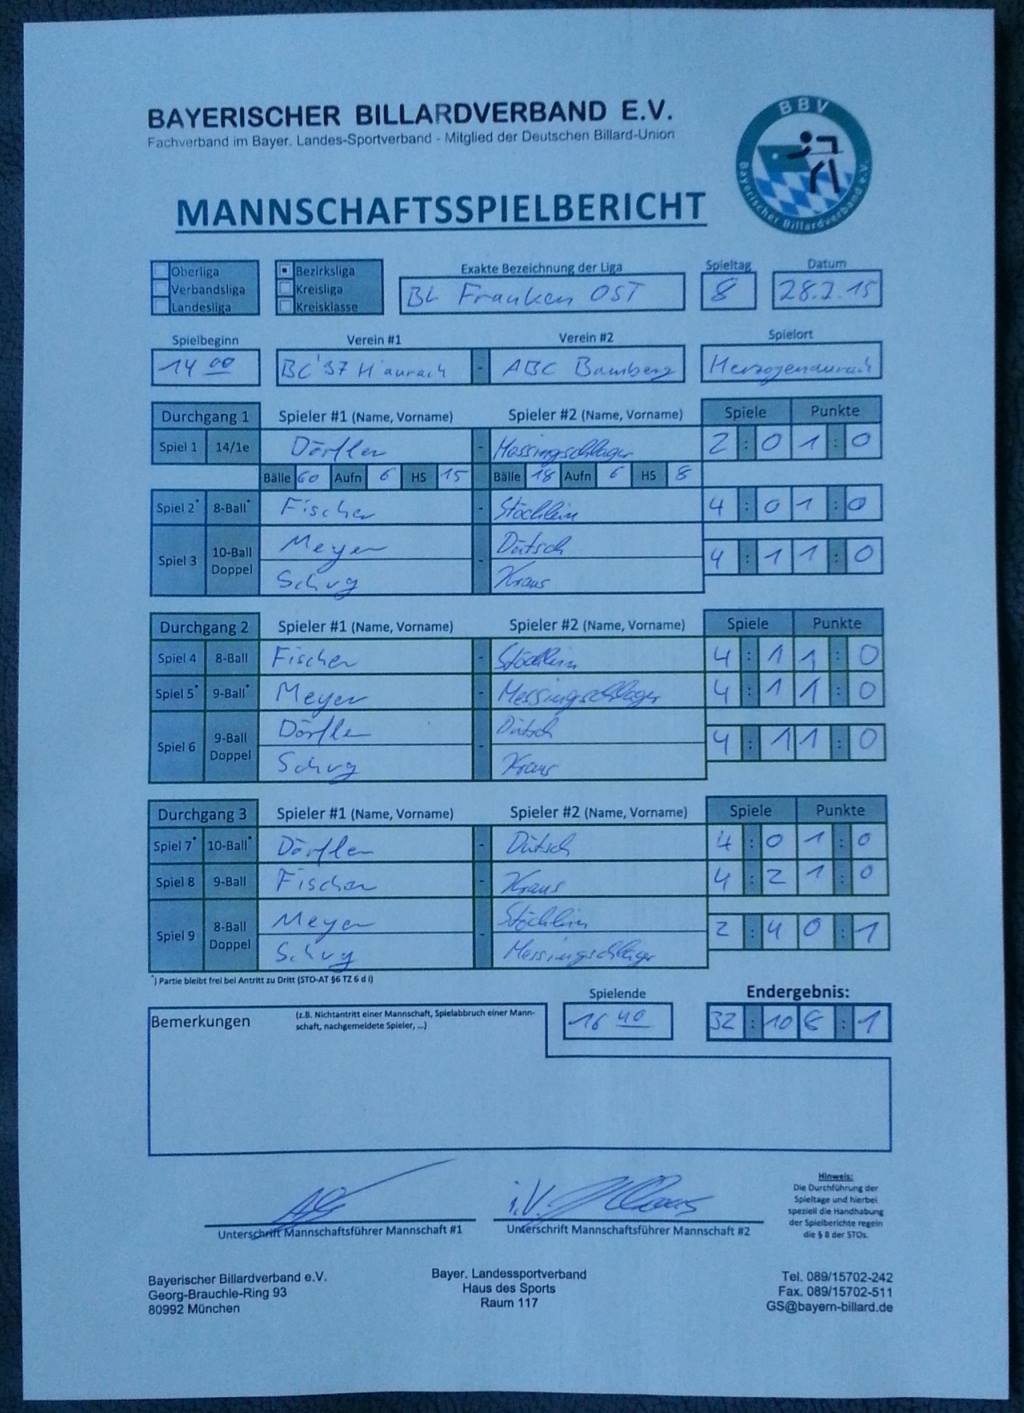 BAYERISCHER BILLARDVERBAND E.V.
Fachverband im Bayer. Landes-Sportverband - Mitglied der Deutschen Billard-Union
BBV
Bayerischer Billardverband e.V.
MANNSCHAFTSSPIELBERICHT
Oberliga
Verbandsliga
Landesliga
Bezirksliga
Kreisliga
Kreisklasse
Exakte Bezeichnung der Liga
BL Franken OST
Spieltag
8
Datum
28.2.15
Spielbeginn
14 00
Verein #1
BC'97 H'aurach
-
Verein #2
ABC Bamberg
Spielort
Herzogenaurach
Durchgang 1 Spieler #1 (Name, Vorname) Spieler #2 (Name, Vorname) Spiele Punkte
Spiel 1 14/1e Dörfler - Messingschlager 2 : 0 1 : 0
Bälle 60 Aufn 6 HS 15 Bälle 18 Aufn 6 HS 8
Spiel 2* 8-Ball* Fischer - Stöcklein 4 : 0 1 : 0
Spiel 3 10-Ball Doppel Meyer - Dütsch 4 : 1 1 : 0
Schug Kraus
Durchgang 2 Spieler #1 (Name, Vorname) Spieler #2 (Name, Vorname) Spiele Punkte
Spiel 4 8-Ball Fischer - Stöcklein 4 : 1 1 : 0
Spiel 5* 9-Ball* Meyer - Messingschlager 4 : 1 1 : 0
Spiel 6 9-Ball Doppel Dörfler - Dütsch 4 : 1 1 : 0
Schug Kraus
Durchgang 3 Spieler #1 (Name, Vorname) Spieler #2 (Name, Vorname) Spiele Punkte
Spiel 7* 10-Ball* Dörfler - Dütsch 4 : 0 1 : 0
Spiel 8 9-Ball Fischer - Kraus 4 : 2 1 : 0
Spiel 9 8-Ball Doppel Meyer - Stöcklein 2 : 4 0 : 1
Schug Messingschlager
*) Partie bleibt frei bei Antritt zu Dritt (STO-AT §6 TZ 6 d i)
Bemerkungen
(z.B. Nichtantritt einer Mannschaft, Spielabbruch einer Mann-
schaft, nachgemeldete Spieler, ...)
Spielende
16 40
Endergebnis:
32 : 10 8 : 1
i.V. Kraus
Unterschrift Mannschaftsführer Mannschaft #1
Unterschrift Mannschaftsführer Mannschaft #2
Hinweis:
Die Durchführung der
Spieltage und hierbei
speziell die Handhabung
der Spielberichte regeln
die § 8 der STOs.
Bayerischer Billardverband e.V.
Georg-Brauchle-Ring 93
80992 München
Bayer. Landessportverband
Haus des Sports
Raum 117
Tel. 089/15702-242
Fax. 089/15702-511
GS@bayern-billard.de